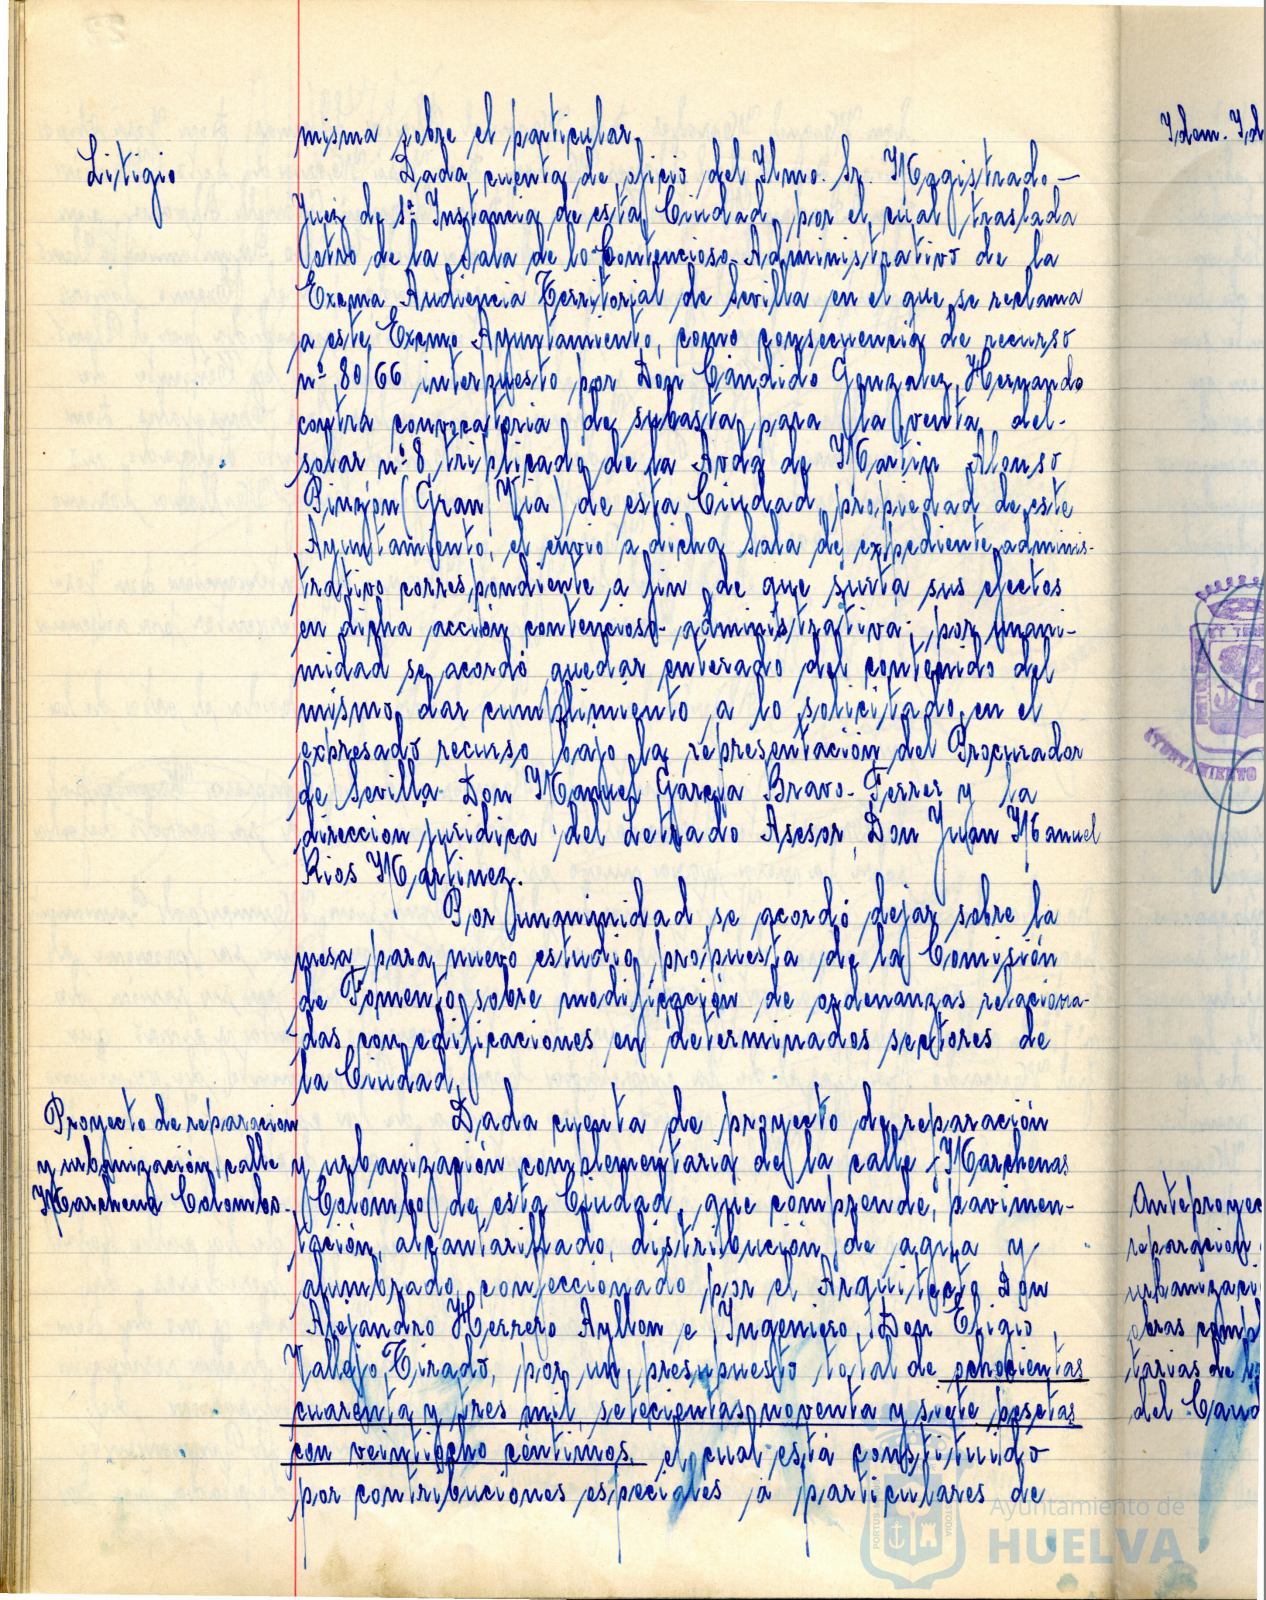 misma sobre el particular.
Litigio
Dada cuenta de oficio del Ilmo. Sr. Magistrado-
Juez de 1ª Instancia de esta Ciudad, por el cual traslada
otro de la Sala de lo Contencioso-Administrativo de la
Excma Audiencia Territorial de Sevilla en el que se reclama
a este Excmo Ayuntamiento, como consecuencia de recurso
nº 80/66 interpuesto por Don Cándido Gonzalez Hernando
contra convocatoria de subasta para la venta del
solar nº 8 triplicado de la Avda de Martin Alonso
Pinzón (Gran Via) de esta Ciudad, propiedad de este
Ayuntamiento, el envio a dicha Sala de expediente adminis-
trativo correspondiente a fin de que surta sus efectos
en dicha acción contencioso-administrativa; por unani-
midad se acordó quedar enterado del contenido del
mismo, dar cumplimiento a lo solicitado en el
expresado recurso bajo la representación del Procurador
de Sevilla Don Manuel Garcia Bravo-Ferrer y la
direccion juridica del Letrado Asesor, Don Juan Manuel
Rios Martinez.
Por unanimidad se acordó dejar sobre la
mesa para nuevo estudio, propuesta de la Comisión
de Fomento, sobre modificación de ordenanzas relaciona-
das con edificaciones en determinados sectores de
la Ciudad.
Proyecto de reparacion
y urbanización calle
Marchena Colombo.
Dada cuenta de proyecto de reparación
y urbanización complementaria de la calle Marchena
Colombo de esta Ciudad, que comprende, pavimen-
tación, alcantarillado, distribución de agua y
alumbrado, confeccionado por el Arquitecto Don
Alejandro Herrero Ayllon e Ingeniero, Don Eligio
Vallejo Tirado, por un presupuesto total de ochocientas
cuarenta y tres mil, setecientas noventa y siete pesetas
con veintiocho céntimos, el cual está constituido
por contribuciones especiales a particulares de
Idem. Id
AYUNTAMIENTO
Anteproyec
reparación
urbanizaci
obras comp
tarias de
del
Ayuntamiento de
HUELVA